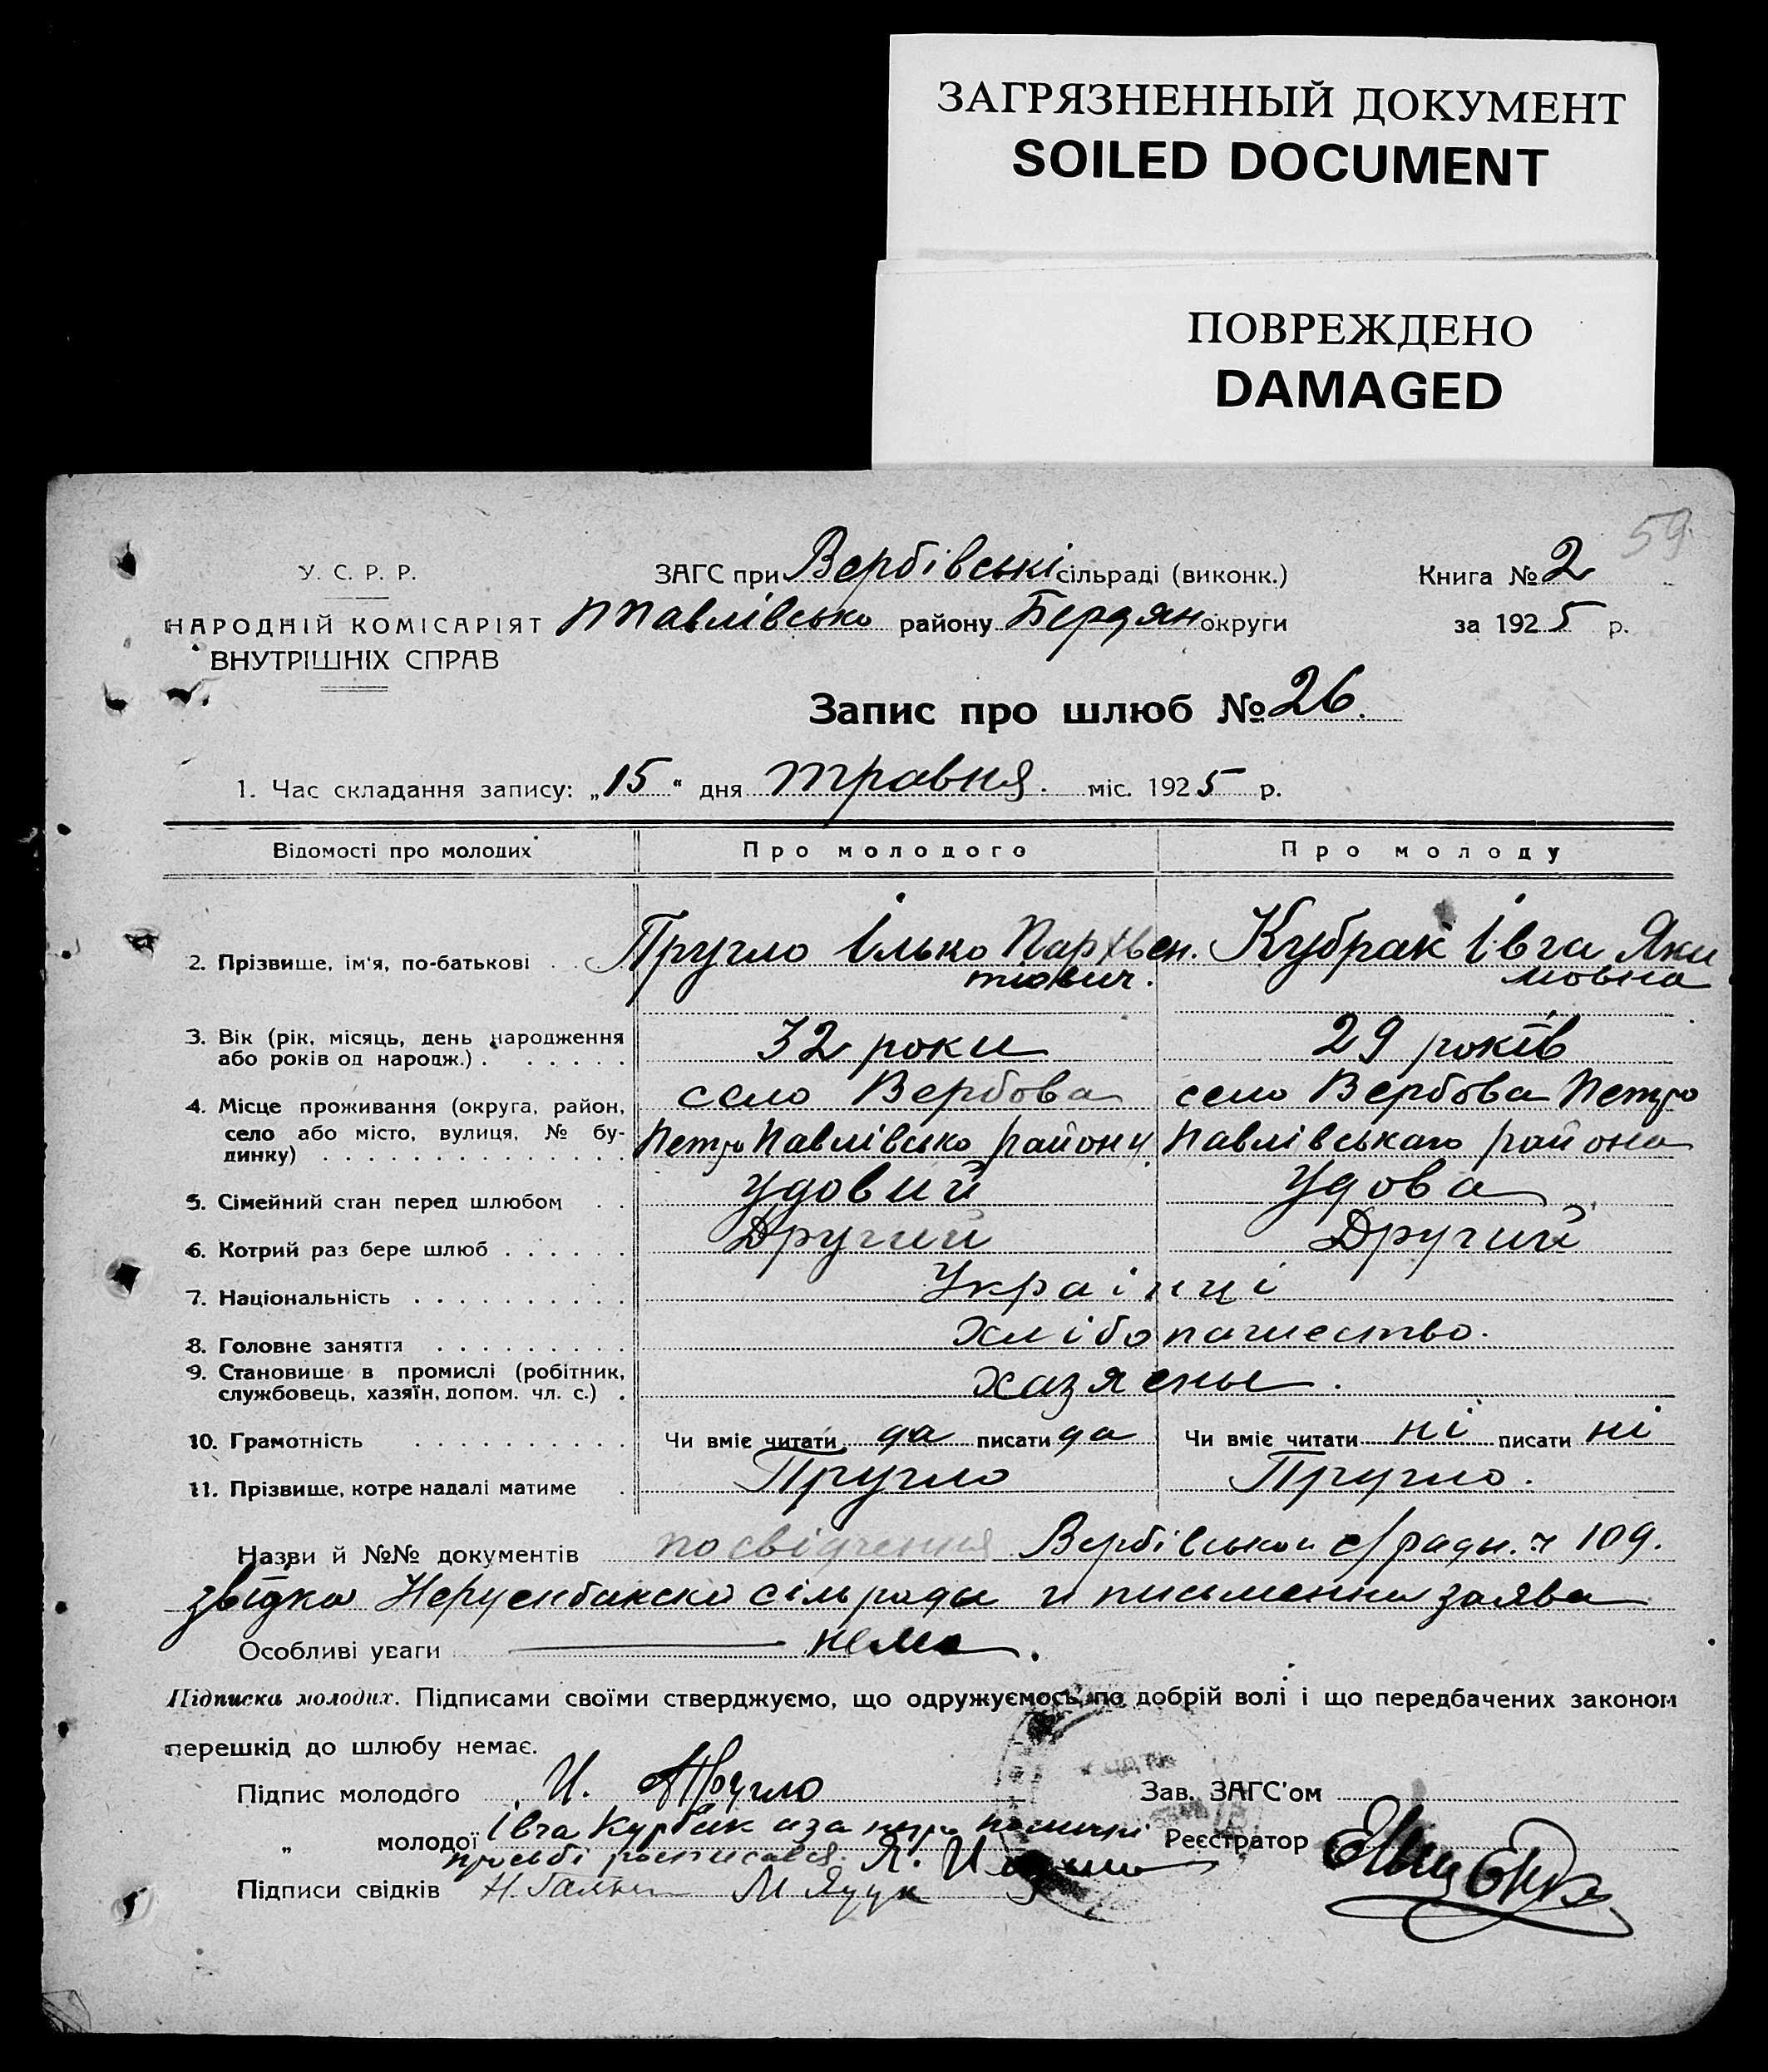 ЗАГРЯЗНЕННЫЙ ДОКУМЕНТ
SOILED DOCUMENT
ПОВРЕЖДЕНО
DAMAGED
59
У. С. Р. Р.
НАРОДНІЙ КОМІСАРІЯТ
ВНУТРІШНІХ СПРАВ
ЗАГС при Вербівські сільраді (виконк.)
ППавлівсько району Бердян округи
Книга № 2
за 1925 р.
Запис про шлюб № 26.
1. Час складання запису: „15“ дня травня. міс. 1925 р.
Відомості про молодих Про молодого Про молоду
2. Прізвище, ім'я, по-батькові Пругло Ілько Пархвен. Кубрак Івга Яки
тиович. мовна
3. Вік (рік, місяць, день народження
або років од народж.) 32 роки 29 років
4. Місце проживання (округа, район, село Вербова село Вербова Петро
село або місто, вулиця, № бу- Петро Павлівсько району Павлівськаго района
динку)
5. Сімейний стан перед шлюбом Удовий Удова
6. Котрий раз бере шлюб Другий Другий
7. Національність Українці
8. Головне заняття хлібопашество.
9. Становище в промислі (робітник,
службовець, хазяїн, допом. чл. с.) хазяены.
10. Грамотність Чи вміє читати да писати да Чи вміє читати ні писати ні
11. Прізвище, котре надалі матиме Пругло Пругло.
Назви й №№ документів посвідчення Вербівськои с/ради. ч 109.
звідка сільради и письменна заява
Особливі уваги нема.
Підписка молодих. Підписами своїми стверджуємо, що одружуємось по добрій волі і що передбачених законом
перешкід до шлюбу немає.
Підпис молодого И. Пругло Зав. ЗАГС'ом
„ молодої Івга Курбак аза Реєстратор
просьбі росписався Я.
Підписи свідків М